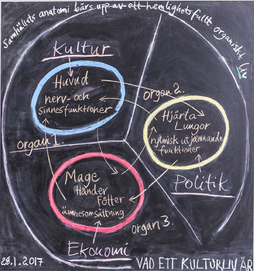 Samhällets anatomi bärs upp av ett hemlighetsfullt organiskt liv
Kultur
Huvud
nerv- och
sinnesfunktioner
organ 2.
Hjärta
Lungor
rytmiskt utjämnande
funktioner
organ 1.
Mage
Händer
Fötter
ämnesomsättning
Politik
organ 3.
Ekonomi
29.1.2017
VAD ETT KULTURLIV ÄR